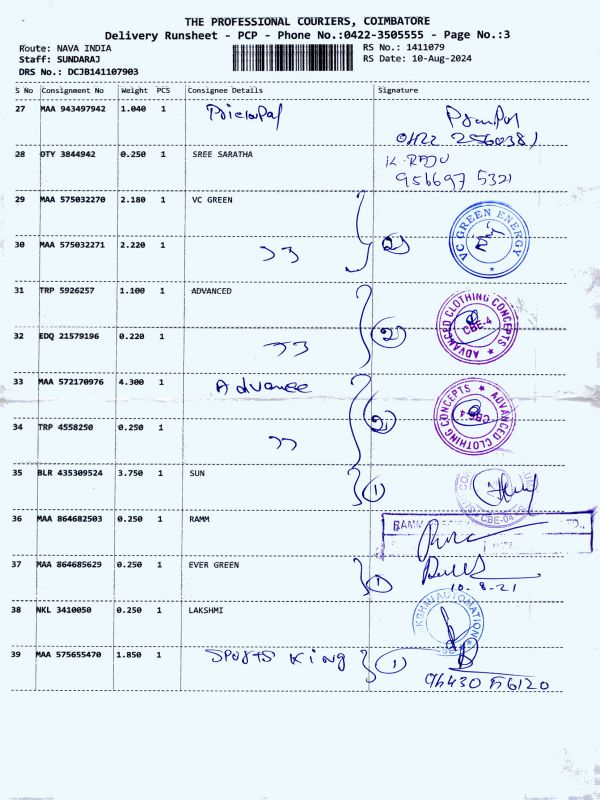 THE PROFESSIONAL COURIERS, COIMBATORE
Delivery Runsheet - PCP - Phone No.:0422-3505555 - Page No.:3
Route: NAVA INDIA
Staff: SUNDARAJ
DRS No.: DCJB141107903
RS No.: 1411079
RS Date: 10-Aug-2024
S No Consignment No Weight PCS Consignee Details Signature
27 MAA 943497942 1.040 1
28 OTY 3844942 0.250 1 SREE SARATHA K. RAJU
956697 5321
29 MAA 575032270 2.180 1 VC GREEN
VC GREEN ENERGY
30 MAA 575032271 2.220 1 2
31 TRP 5926257 1.100 1 ADVANCED
ADVANCED CLOTHING CONCEPTS
CBE-4
32 EDQ 21579196 0.220 1 2
33 MAA 572170976 4.300 1 Advance
ADVANCED CLOTHING CONCEPTS
CBE-4
34 TRP 4558250 0.250 1 2
35 BLR 435309524 3.750 1 SUN 1
CBE-04
36 MAA 864682503 0.250 1 RAMM
37 MAA 864685629 0.250 1 EVER GREEN 1
10.8.21
38 NKL 3410050 0.250 1 LAKSHMI
KSHMI AUTOMATION
39 MAA 575655470 1.850 1 Sports King 1
96430 56120